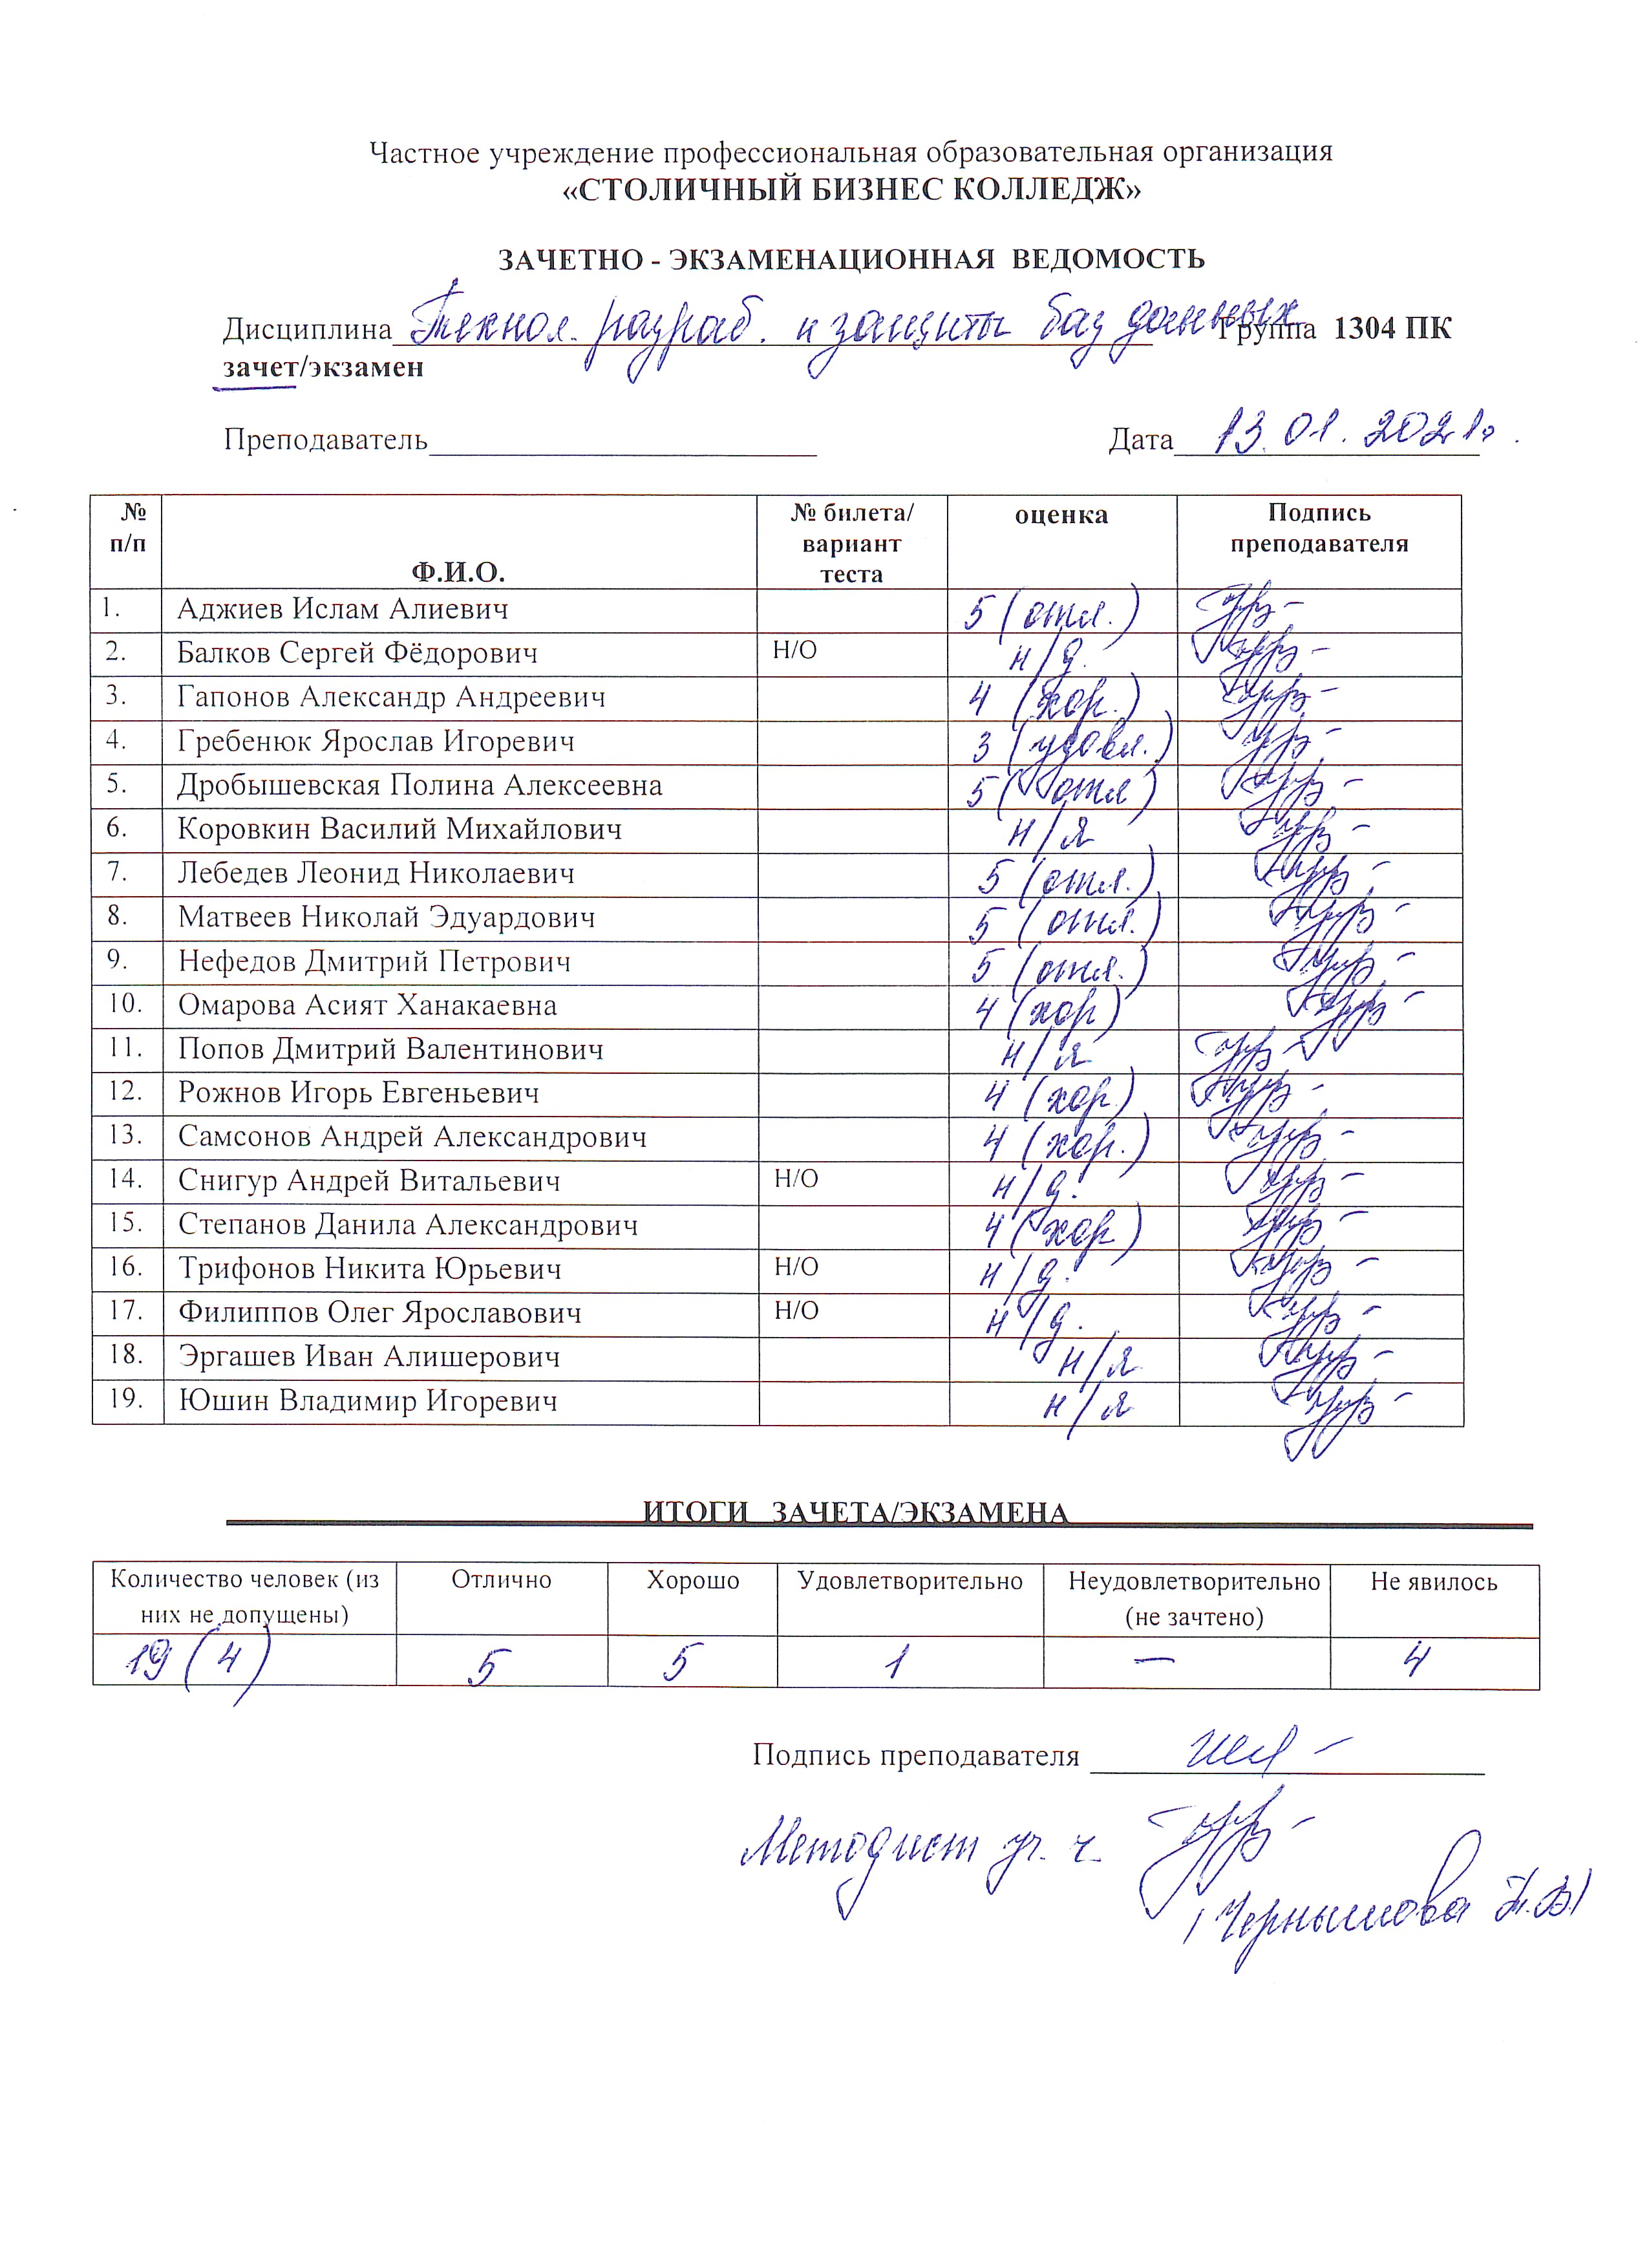 Частное учреждение профессиональная образовательная организация
«СТОЛИЧНЫЙ БИЗНЕС КОЛЛЕДЖ»
ЗАЧЕТНО - ЭКЗАМЕНАЦИОННАЯ ВЕДОМОСТЬ
Дисциплина Технол. разраб. и защиты баз данных Группа 1304 ПК
зачет/экзамен
Преподаватель Дата 13.01.2021г.
№ п/п Ф.И.О. № билета/ вариант теста оценка Подпись преподавателя
1. Аджиев Ислам Алиевич 5 (отл.)
2. Балков Сергей Фёдорович Н/О н/д.
3. Гапонов Александр Андреевич 4 (хор.)
4. Гребенюк Ярослав Игоревич 3 (удовл.)
5. Дробышевская Полина Алексеевна 5 (отл)
6. Коровкин Василий Михайлович н/я
7. Лебедев Леонид Николаевич 5 (отл.)
8. Матвеев Николай Эдуардович 5 (отл.)
9. Нефедов Дмитрий Петрович 5 (отл.)
10. Омарова Асият Ханакаевна 4 (хор)
11. Попов Дмитрий Валентинович н/я
12. Рожнов Игорь Евгеньевич 4 (хор.)
13. Самсонов Андрей Александрович 4 (хор.)
14. Снигур Андрей Витальевич Н/О н/д.
15. Степанов Данила Александрович 4 (хор)
16. Трифонов Никита Юрьевич Н/О н/д.
17. Филиппов Олег Ярославович Н/О н/д.
18. Эргашев Иван Алишерович н/я
19. Юшин Владимир Игоревич н/я
ИТОГИ ЗАЧЕТА/ЭКЗАМЕНА
Количество человек (из них не допущены) Отлично Хорошо Удовлетворительно Неудовлетворительно (не зачтено) Не явилось
19 (4) 5 5 1 — 4
Подпись преподавателя
Методист уч. ч.
/Чернышова Н.В/